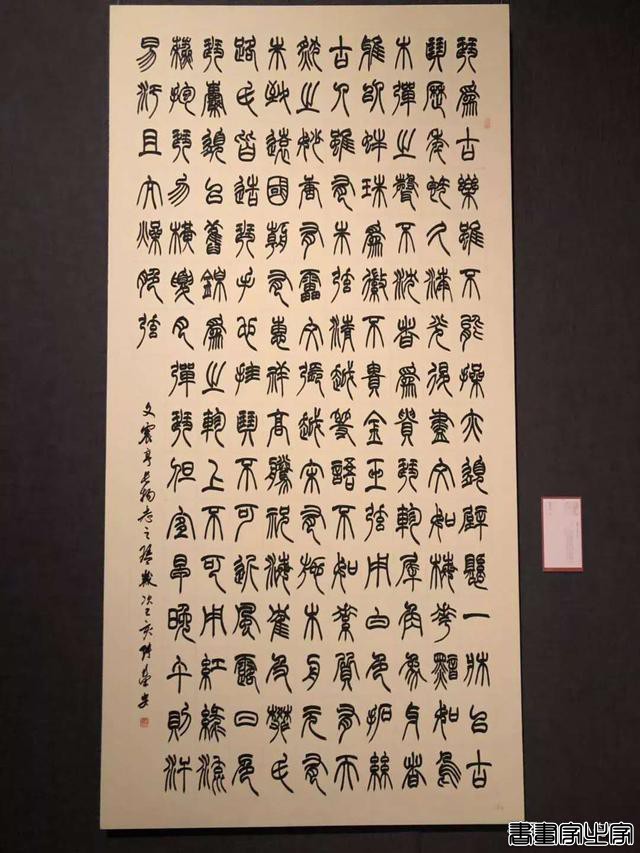 琴為古樂雖不能操亦須壁懸一牀以古
琴歷年既久漆光退盡文如梅花黯如烏
木彈之聲不沈者為貴琴軫犀角象牙者
雅以蚌珠為徽不貴金玉弦用白色柘絲
古人雖有朱弦清越等語不如素質有天
然之妙唐有雷文張越宋有施木舟元有
朱致遠國朝有惠祥高騰祝海鶴及樊氏
路氏皆造琴手也挂琴不可近風露日色
琴囊須以舊錦為之軫上不可用紅綠流
蘇抱琴勿橫夏月彈琴但宜早晚午則汗
易汙且太燥脆弦
文震亨長物志之琴歲次己亥
書畫家之家